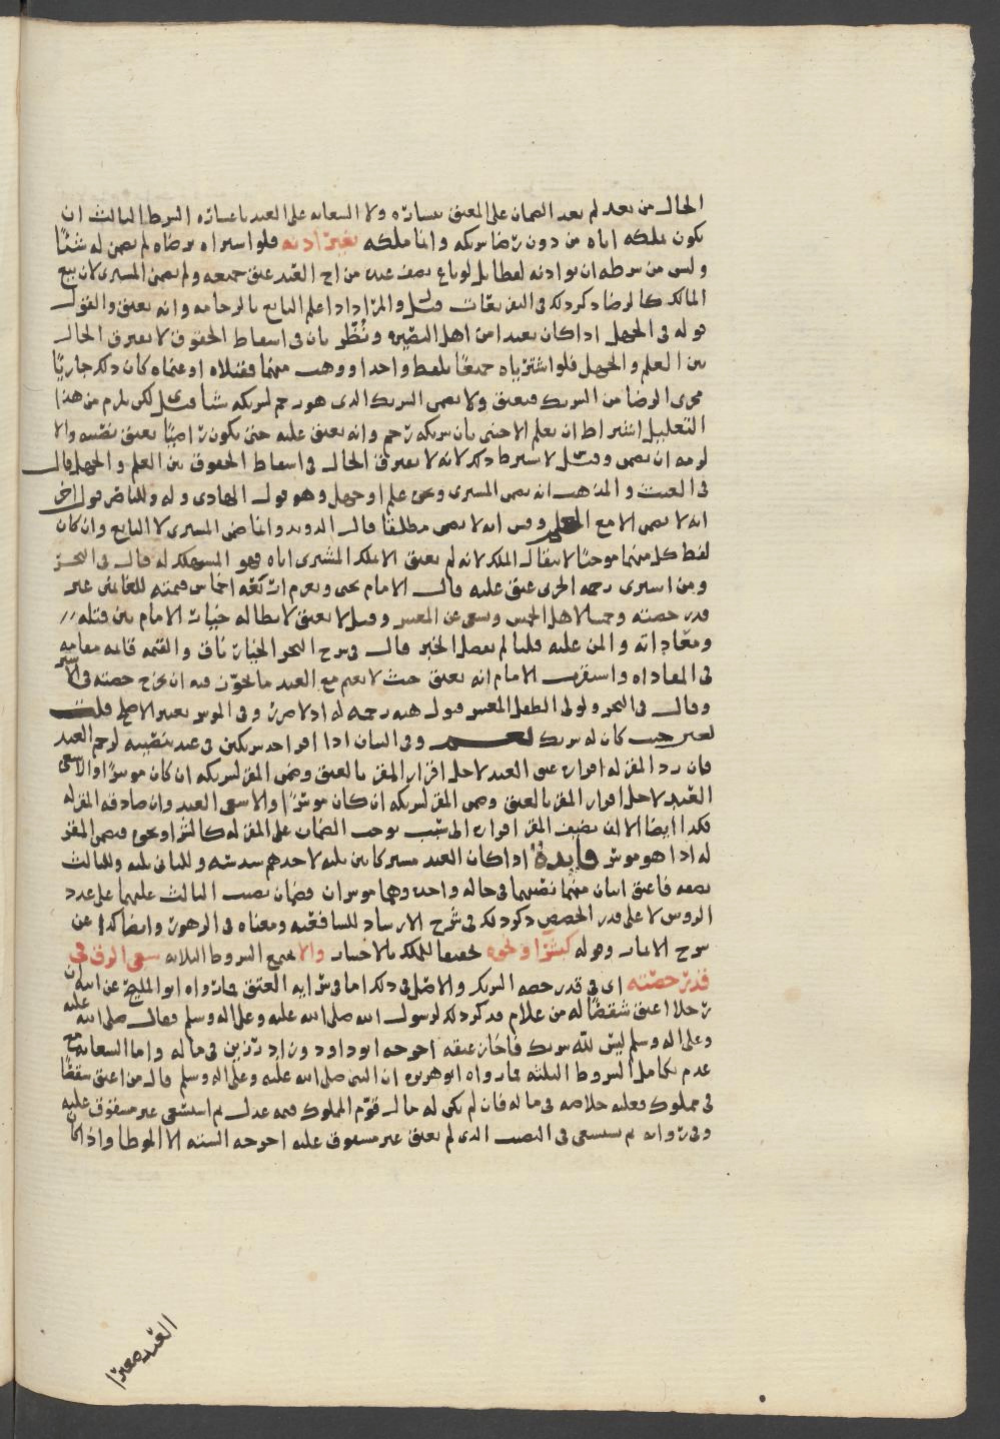 الحال من بعد لم بعد الضمان على المعتق بيساره ولا السعاية على العبد باعساره الشرط الثالث ان
يكون ملكه اياه من دون رضا شريكه وانما ملكه بغير اذنه فلو اشتراه برضاه لم يضمن له شيئًا
وليس من شرطه ان يواذنه لفظا بل لو باع نصف عبده من اخ العبد عتق جميعه ولم يضمن المشتري لان بيع
المالك كالرضا ذكر ذلك في التفريعات وقيل والمراد اذا علم البايع بالرحامه وانه يعتق والقول
قوله في الجهل اذا كان بعيدا من اهل التمييز ونُظّر بان في اسقاط الحقوق لا يفترق الحال
بين العلم والجهل فلو اشترياه جميعًا بلفظ واحد او وهب منهما فقبلاه او غنماه كان ذلك جاريًا
مجرى الرضا من الشريك فيعتق ولا يضمن الشريك الذي هو رحم لشريكه شيا قيل لكن يلزم من هذا
التعليل اشتراط ان يعلم الاجنبي بان شريكه رحم وانه يعتق عليه حتى يكون راضيًا بعتق نصيبه والا
لزمه ان يضمن وقيل لا يشترط ذلك لانه لا يفترق الحال في اسقاط الحقوق بين العلم والجهل قال
في الغيث والمذهب انه يضمن المشتري وحق علم او جهل وهو قول الهادي وله وللناصر قول اخر
انه لا يضمن الا مع العلم وقيل انه لا يضمن مطلقًا قال الدويد وانما ضمن المشتري لا البايع وان كان
لفظ كل منهما موجبًا لانتقال الملك لانه لم يعتق الا بملك المشتري اياه فهو المستهلك له قال في البحر
ومن اشترى رحمه الحربي عتق عليه قال الامام يحيى ويغرم اربعة اخماس قيمته للغانمين غير
قدر حصته وخمسا لاهل الخمس ويسعى عن المعسر وقيل لا يعتق لابطاله خيار الامام بين قتله
ومفاداته والمن عليه قلنا لم يفصل الخبر قال في شرح البحر الخيار باق والقيمة قائمه مقامه
في المفاداه واستقرب الامام انه يعتق حيث لا يغنم مع العبد ما يجوز فيه ان يخرج حصته في الاسير
وقال في البحر ولولي الطفل المعسر قبول هبه رحمه له اذ لا ضرر وفي الموسر يعتبر الاصلح قلت
لعله حيث كان له شريك نعم وفي البيان اذا اقر احد شريكين في عبد بنصيبه لرحم العبد
فان رد المقر له اقراره عتق العبد لاجل اقرار المقر بالعتق وضمن المقر لشريكه ان كان موسرًا والا سعى
العبد لاجل اقرار المقر بالعتق وضمن المقر لشريكه ان كان موسرًا والا سعى العبد وان صادقه المقر له
فكذا ايضا الا ان يضيف المقر اقراره الى سبب يوجب الضمان على المقر له كالشرا ونحوه فيضمن المقر
له اذا هو موسر فايدة اذا كان العبد مشتركا بين ثلثه لاحدهم سدسه وللثاني ثلثه وللثالث
نصفه فاعتق اثنان منهما نصيبهما في حاله واحده وهما موسران فضمان نصيب الثالث عليهما على عدد
الروس لا على قدر الحصص ذكر ذلك في شرح الارشاد للشافعيه ومعناه في الزهور وايضا كذا عن
شرح الاثمار وقوله كشرًا ونحوه تحقيقا للملك بالاختيار والا تجتمع الشروط الثلاثه سعى الرق في
قدر حصته اي في قدر حصه الشريك والاصل في ذلك اما في سراية العتق فما رواه ابو المليح عن ابيه ان
رجلا اعتق شقصًا له من غلام فذكر ذلك لرسول الله صلى الله عليه وعلى اله وسلم فقال صلى الله عليه
وعلى اله وسلم ليس لله شريك فاجاز عتقه اخرجه ابو داود وزاد رزين في ماله واما السعاية مع
عدم تكامل الشروط الثلثه فما رواه ابو هريره ان النبي صلى الله عليه وعلى اله وسلم قال من اعتق شقصًا
في مملوك فعليه خلاصه في ماله فان لم يكن له مال قوّم المملوك قيمه عدل ثم استسعي غير مشقوق عليه
وفي روايه ثم يستسعى في النصيب الذي لم يعتق غير مشقوق عليه اخرجه الستة الا الموطا واذا كان
العبد صغيرًا